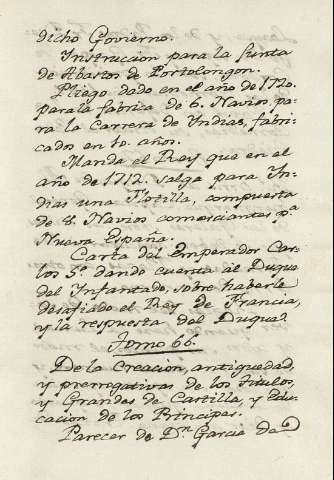 dicho Govierno.
Instrucion para la Junta
de Abastos de Portolongon.
Pliego dado en el año de 1720.
para la fabrica de 6. Navios, pa-
ra la Carrera de Yndias, fabri-
cados en 10. años.
Manda el Rey que en el
año de 1712. salga para Yn-
dias una Flotilla, compuesta
de 8. Navios comerciantes pª
Nueva España.
Carta del Emperador Car-
los 5º dando cuenta al Duque
del Infantado, sobre haberle
desafiado el Rey de Francia,
y la respuesta del Duque.
Tomo 66.
De la Creacion, antiguedad,
y prerrogativas de los Titulos,
y Grandes de Castilla, y Edu-
cacion de los Principes.
Parecer de Dn Garcia de